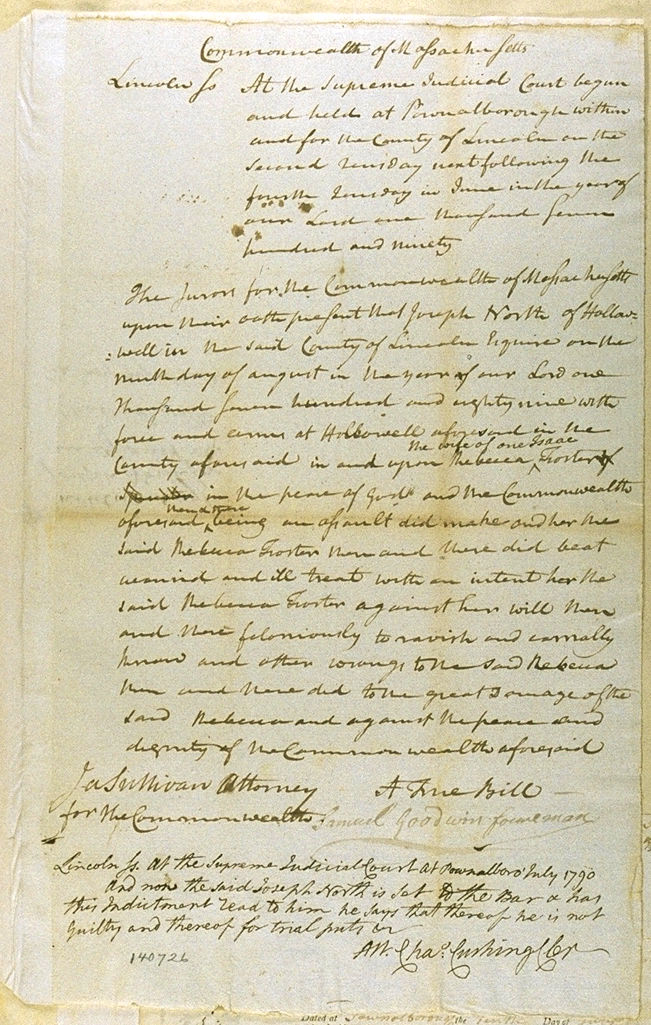 Commonwealth of Massachusetts
Lincoln Ss At the Supreme Judicial Court begun
and held at Pownalborough within
and for the County of Lincoln on the
second Tuesday next following the
fourth Tuesday in June in the year of
our Lord one thousand seven
hundred and ninety
The Jurors for the Commonwealth of Massachusetts
upon their oath present that Joseph North of Hallow-
=well in the said County of Lincoln Esquire on the
ninth day of august in the year of our Lord one
thousand seven hundred and eighty nine with
force and arms at Hallowell aforesaid in the
the wife of one Isaac
County aforesaid in and upon Rebecca Foster of
Spinster in the peace of God and the Commonwealth
then & there
aforesaid being an assault did make and her the
said Rebecca Foster then and there did beat
wound and ill treat with an intent her the
said Rebecca Foster against her will then
and there feloniously to ravish and carnally
know and other wrongs to the said Rebecca
then and there did to the great Damage of the
said Rebecca and against the peace and
dignity of the Commonwealth aforesaid
Ja Sullivan Attorney A True Bill
for the Commonwealth Samuel Goodwin foreman
Lincoln Ss. At the Supreme Judicial Court at Pownalboro' July 1790
And now the said Joseph North is set to the Bar & has
this Indictment read to him he says that thereof he is not
Guilty and thereof for trial puts &c
Att. Chas. Cushing Cler
140726
Dated at Pownalborough the tenth Day of